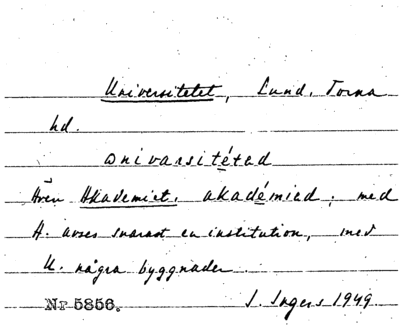 Universitetet, Lund. Torna
hd.
onivarsitétad
Även Akademiet, akadémiad; med
A. avses snarast en institution, med
U. några byggnader.
Nr 5856. I. Ingers 1949